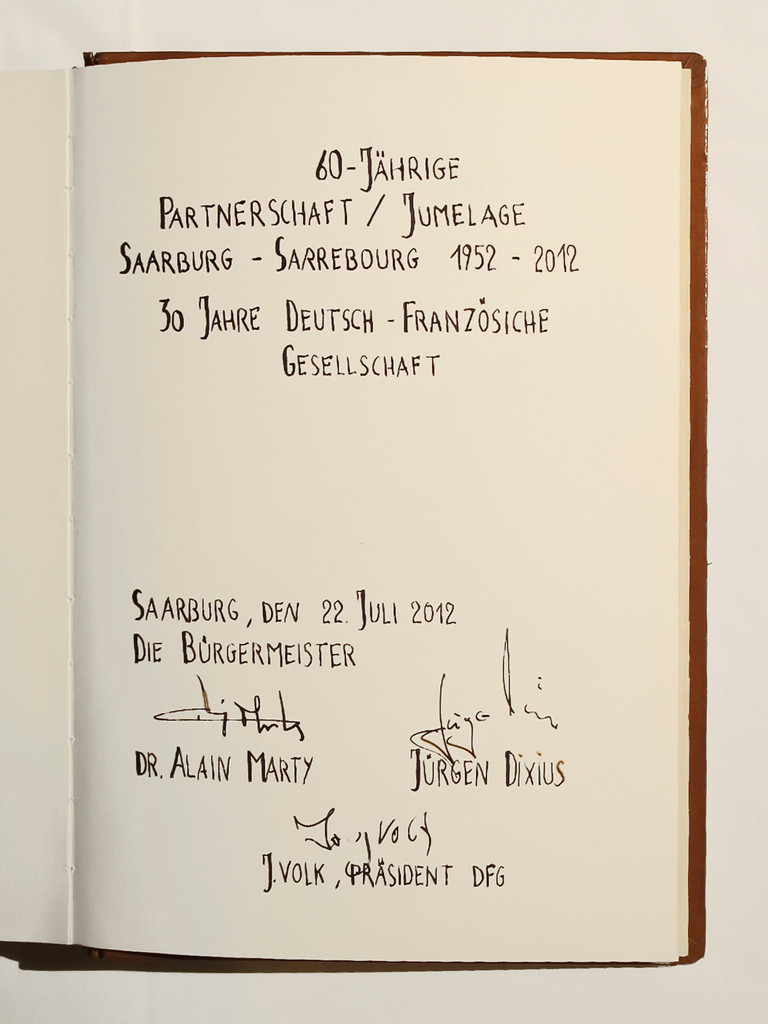 60-JÄHRIGE
PARTNERSCHAFT / JUMELAGE
SAARBURG - SARREBOURG 1952 - 2012
30 JAHRE DEUTSCH - FRANZÖSICHE
GESELLSCHAFT
SAARBURG, DEN 22. JULI 2012
DIE BÜRGERMEISTER
DR. ALAIN MARTY JÜRGEN DIXIUS
J. VOLK, PRÄSIDENT DFG